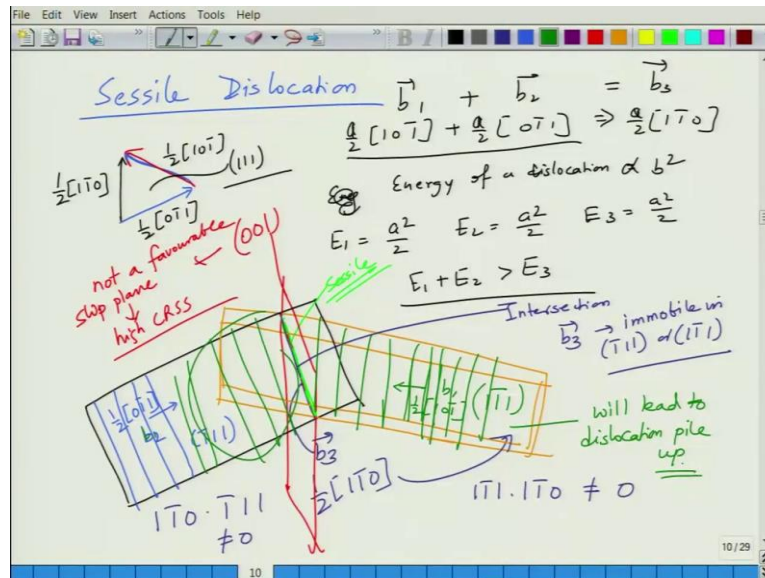 File Edit View Insert Actions Tools Help
Sessile Dislocation
b⃗₁ + b⃗₂ = b⃗₃
a/2 [101̄] + a/2 [01̄1] ⇒ a/2 [11̄0]
½[101̄]
(111)
½[11̄0]
½[01̄1]
Energy of a dislocation ∝ b²
E₁ = a²/2 E₂ = a²/2 E₃ = a²/2
E₁ + E₂ > E₃
not a favourable
slip plane
↓
high CRSS
(001)
Sessile
Intersection
b⃗₃ → immobile in
(1̄11) or (11̄1)
½[01̄1]
b₂
(1̄11)
b₁
½[101̄]
(11̄1)
will lead to
dislocation pile
up.
b⃗₃
½[11̄0]
11̄0 . 1̄11
≠ 0
11̄1 . 11̄0 ≠ 0
10/29
10